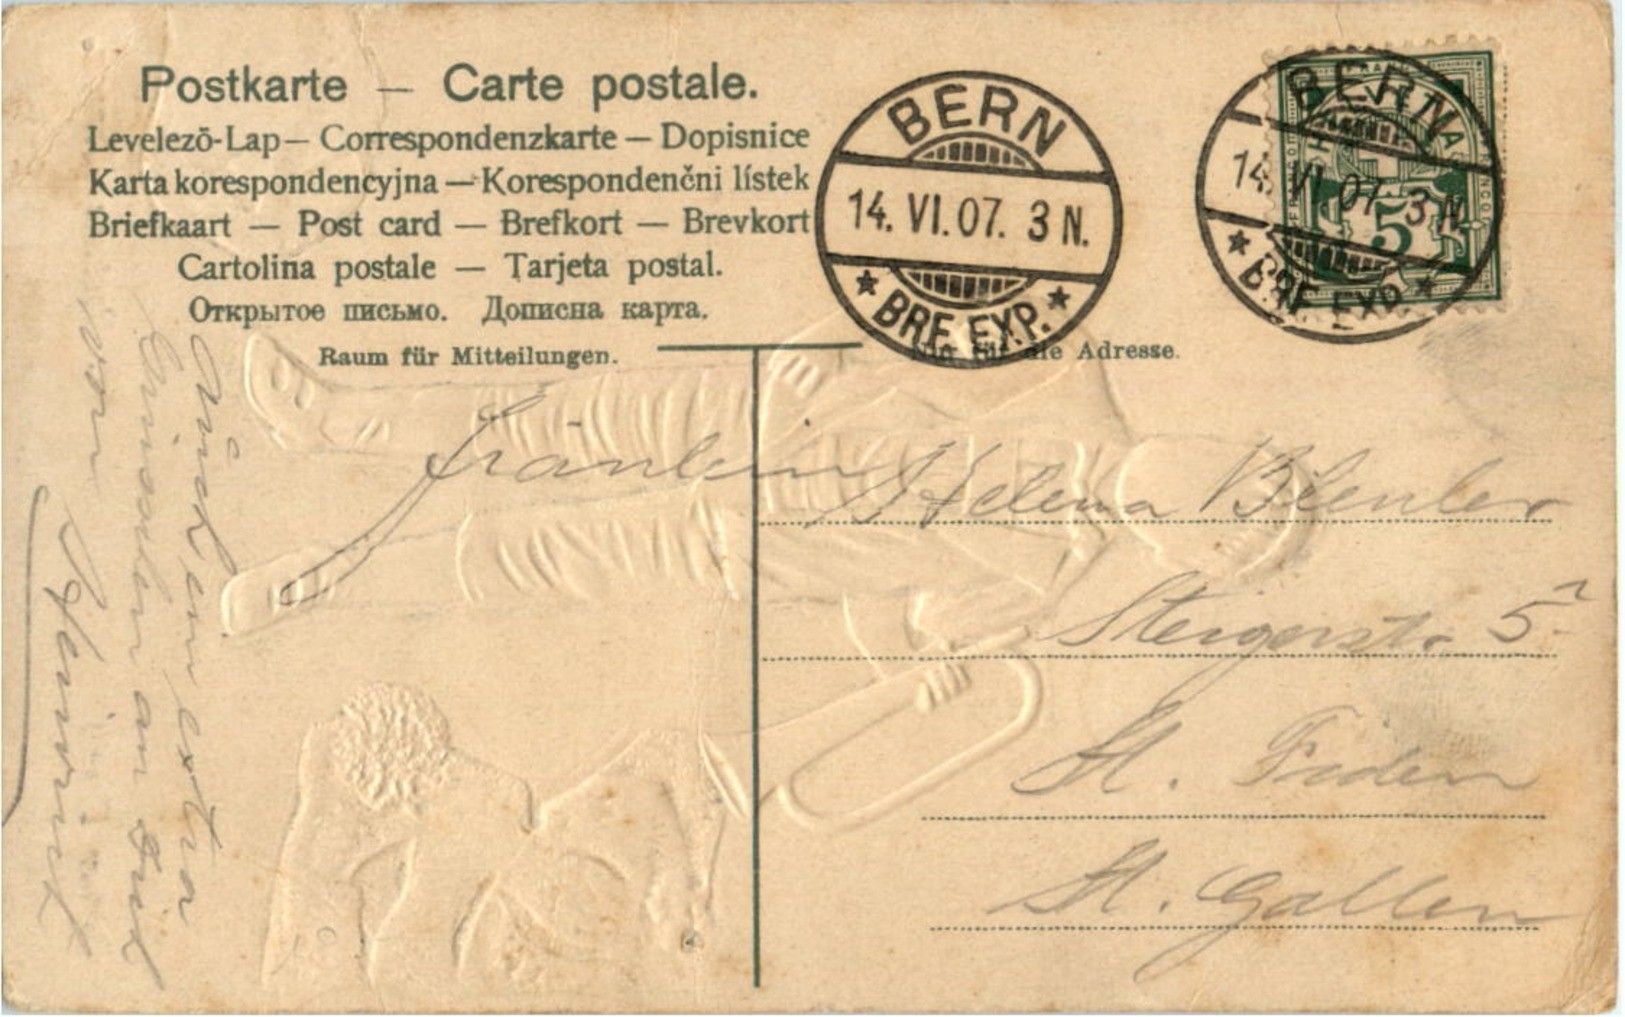 Postkarte — Carte postale.
Levelezö-Lap — Correspondenzkarte — Dopisnice
Karta korespondencyjna — Korespondenčni lístek
Briefkaart — Post card — Brefkort — Brevkort
Cartolina postale — Tarjeta postal.
Открытое письмо. Дописна карта.
Raum für Mitteilungen.
Nur für die Adresse.
BERN
14. VI. 07. 3 N.
BRF. EXP.
BERN
14. VI. 07. 3 N.
BRF. EXP.
HELVETIA
5
Fräulein Helena
Steigerstr. 5
St. Fiden
St. Gallen
extra
an
von
Heinrich